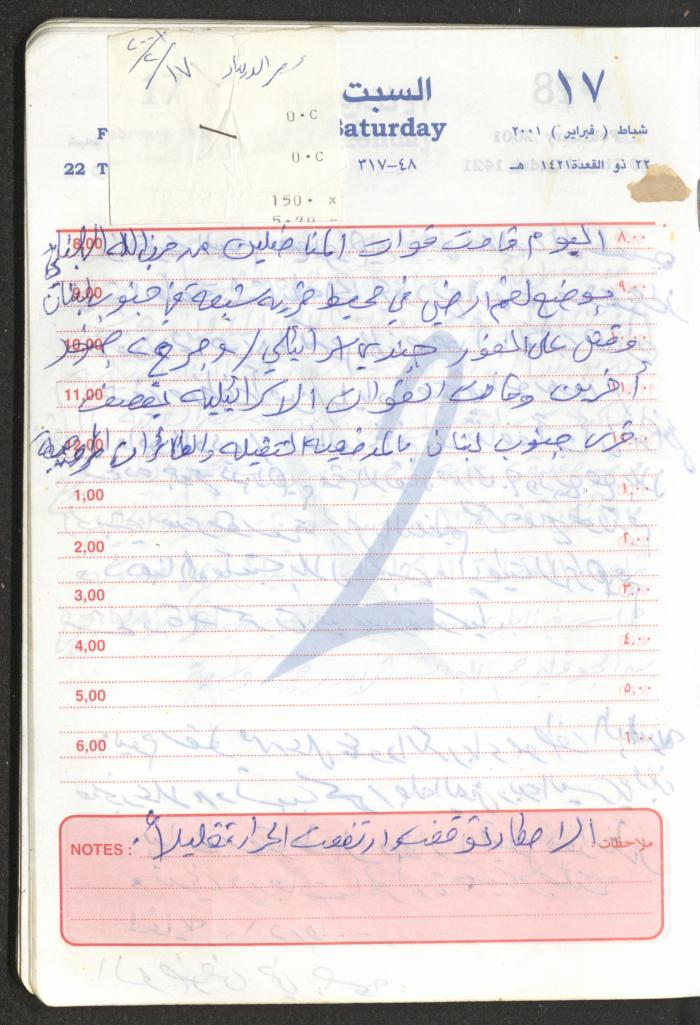 ١٧
السبت
Saturday
شباط ( فبراير ) ٢٠٠١
F
٢٢ ذو القعدة ١٤٢١ هـ
٤٨-٣١٧
22 T
١٧/٢/٢٠٠٠
0·C
0·C
150· x
5·70
8,00 ٨,٠٠
اليوم قامت قوات المناضلين من حزب الله اللبناني
9,00 ٩,٠٠
بوضع لغم ارضي في محيط مزرعه شبعة في جنوب لبنان
10,00
وقتل على الفور جندي اسرائيلي / وجرح
11,00
آخرين وقامت القوات الاسرائيليه بقصف
قرى جنوب لبنان بالمدفعيه الثقيله والطائرات المروحية
1,00 ١,٠٠
2,00 ٢,٠٠
3,00 ٣,٠٠
4,00 ٤,٠٠
5,00 ٥,٠٠
6,00 ٦,٠٠
ملاحظات:
NOTES :
الامطار توقفت وارتفعت الحراره قليلاً.